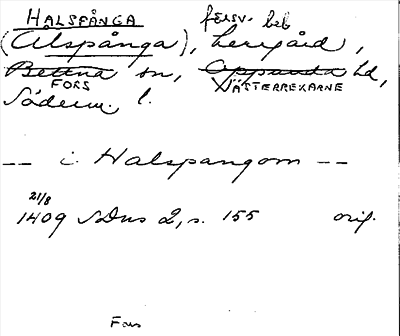 HALSPÅNGA försv. beb
(Alspånga), herrgård,
Bettna sn, Oppunda hd,
FORS VÄSTERREKARNE
Söderm. l.
-- i Halspangom --
21/8
1409 SDns 2, s. 155 orig.
Fors